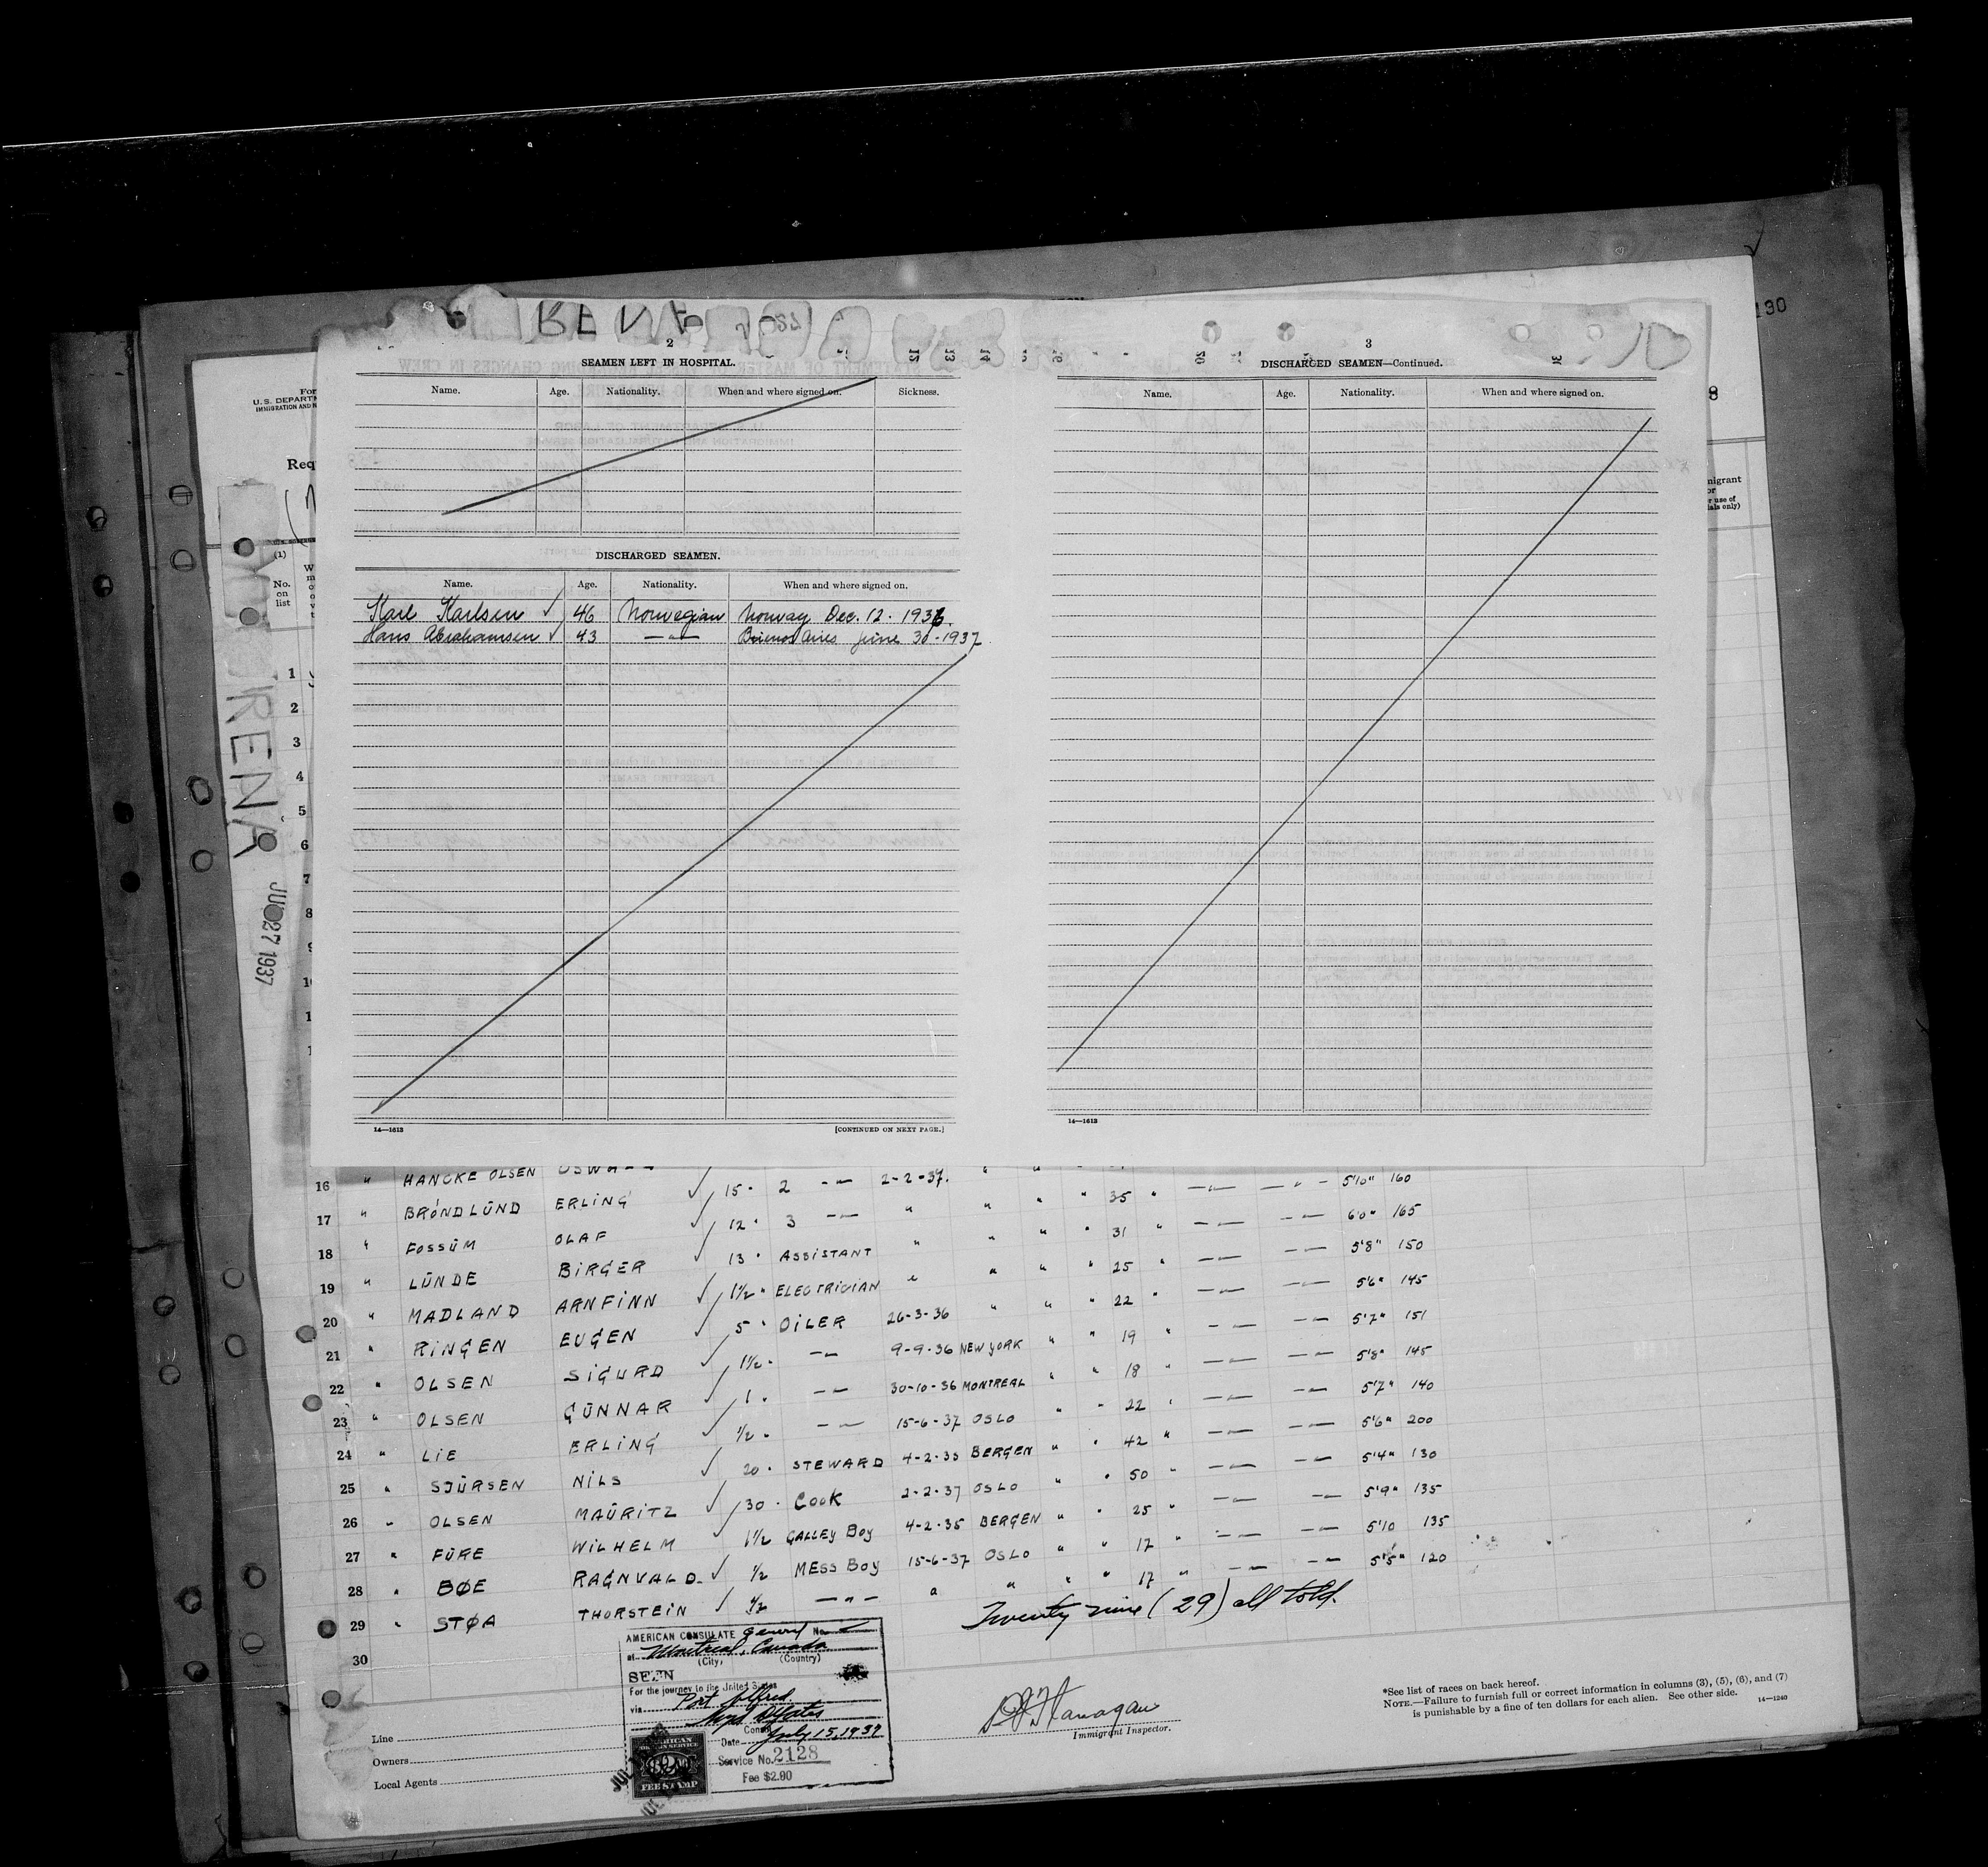 130
2
SEAMEN LEFT IN HOSPITAL.
Name. Age. Nationality. When and where signed on. Sickness.
DISCHARGED SEAMEN.
Name. Age. Nationality. When and where signed on.
Karl Karlsen ✓ 46 Norwegian Norway Dec. 12. 1936.
Hans Abrahamsen ✓ 43 —"— Buenos Aires June 30-1937
14—1613 [CONTINUED ON NEXT PAGE.]
3
DISCHARGED SEAMEN—Continued.
Name. Age. Nationality. When and where signed on.
14—1613
U.S. DEPART
IMMIGRATION AND N
Req
(1)
No.
on
list
RENA
JUL 27 1937
8
nigrant
or
r use of
ials only)
1
2
3
4
5
6
7
8
16 " HANCKE OLSEN
17 " BRÖNDLUND ERLING ✓ 15 " 2 —"— 2-2-37. " " " 35 " —"— —"— 5'10" 160
18 " FOSSUM OLAF ✓ 12 " 3 —"— " " " " 31 " —"— —"— 6'0" 165
19 " LUNDE BIRGER ✓ 13 " ASSISTANT " " " " 25 " —"— —"— 5'8" 150
20 " MADLAND ARNFINN ✓ 1½ " ELECTRICIAN " " " " 22 " —"— —"— 5'6" 145
21 " RINGEN EUGEN ✓ 5 " OILER 26-3-36 " " " 19 " —"— —"— 5'7" 151
22 " OLSEN SIGURD ✓ 1½ " —"— 9-9-36 NEW YORK " " 18 " —"— —"— 5'8" 145
23 " OLSEN GUNNAR ✓ 1 " —"— 30-10-36 MONTREAL " " 22 " —"— —"— 5'7" 140
24 " LIE ERLING ✓ ½ " —"— 15-6-37 OSLO " " 42 " —"— —"— 5'6" 200
25 " SJURSEN NILS ✓ 20 " STEWARD 4-2-35 BERGEN " " 50 " —"— —"— 5'4" 130
26 " OLSEN MAURITZ ✓ 30 " COOK 2-2-37 OSLO " " 25 " —"— —"— 5'9" 135
27 " FURE WILHELM ✓ 1½ GALLEY BOY 4-2-35 BERGEN " " 17 " —"— —"— 5'10 135
28 " BØE RAGNVALD ✓ ½ MESS BOY 15-6-37 OSLO " " 17 " —"— —"— 5'5" 120
29 " STØA THORSTEIN ✓ ½ —"— " " " "
Twenty nine (29) all told.
30
AMERICAN CONSULATE General No.
at Montreal, Canada
(City, (Country)
SEEN
For the journey to the United States
via Port Alfred
Consul
Date July 15, 1937
Service No. 2128
Fee $2.00
AMERICAN
FEE STAMP
Line
Owners
Local Agents
Flanagan
Immigrant Inspector.
*See list of races on back hereof.
NOTE.—Failure to furnish full or correct information in columns (3), (5), (6), and (7)
is punishable by a fine of ten dollars for each alien. See other side. 14—1240